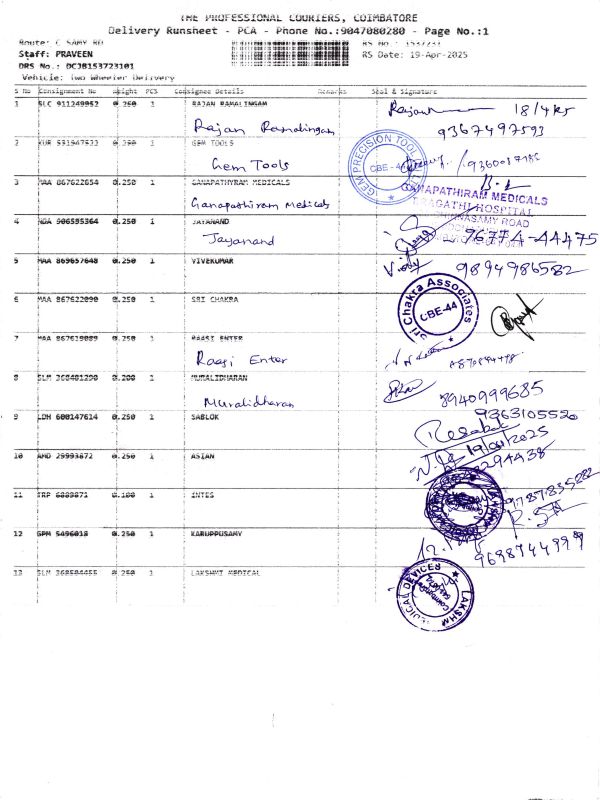 THE PROFESSIONAL COURIERS, COIMBATORE
Delivery Runsheet - PCA - Phone No.:9047080280 - Page No.:1
Route: C SAMY RD RS No : 1537231
Staff: PRAVEEN RS Date: 19-Apr-2025
DRS No.: DCJB153723101
Vehicle: Two Wheeler Delivery
S No Consignment No Weight PCS Consignee Details Remarks Seal & Signature
1 SLC 911249952 0.250 1 RAJAN RAMALINGAM
Rajan Ramalingam
9367497593
2 KUR 0.250 1 GEM TOOLS
Gem Tools
GEM PRECISION TOOLS
CBE-44
3 MAA 867622654 0.250 1 GANAPATHYRAM MEDICALS
Ganapathiram Medicals
GANAPATHIRAM MEDICALS
HOSPITAL
CHINNASAMY ROAD
4 906555364 0.250 1 JAYANAND
Jayanand
96774-44475
5 MAA 869657648 0.250 1 VIVEKUMAR
9894986582
6 MAA 867622090 0.250 1 SRI CHAKRA
Sri Chakra Associates
CBE-44
7 MAA 867619089 0.250 1 RAASI ENTER
Raasi Enter
8 SLM 368401290 0.200 1 MURALIDHARAN
Muralidharan
8940999685
9 LDH 600147614 0.250 1 SABLOK
9363105520
10 AMD 29993872 0.250 1 ASIAN
19/04/2025
11 TRP 6889871 0.100 1 INTES
9787835282
12 GPM 5496018 0.250 1 KARUPPUSAMY
13 SLM 368504455 0.250 1 LAKSHMI MEDICAL
MEDICAL DEVICES